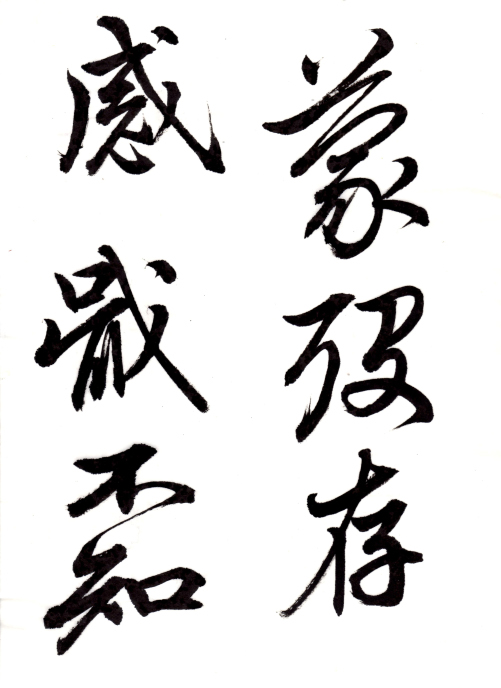 蒙殁存
感戢不知